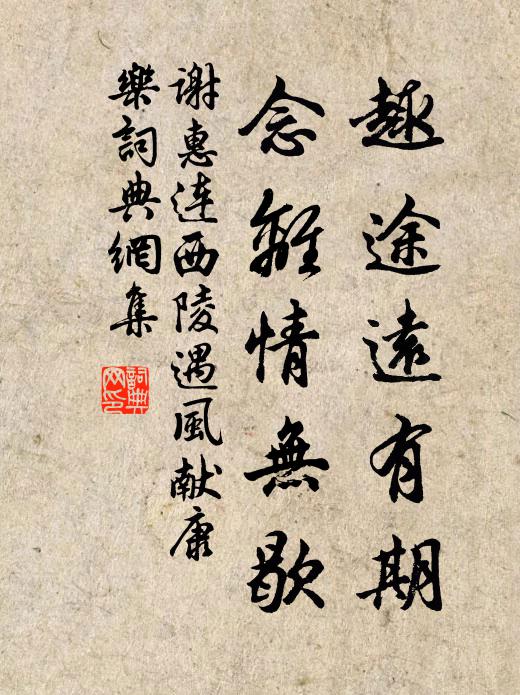 趣途遠有期
念離情無歇
谢惠连西陵遇風献康
樂詞典網集
詞典
网印